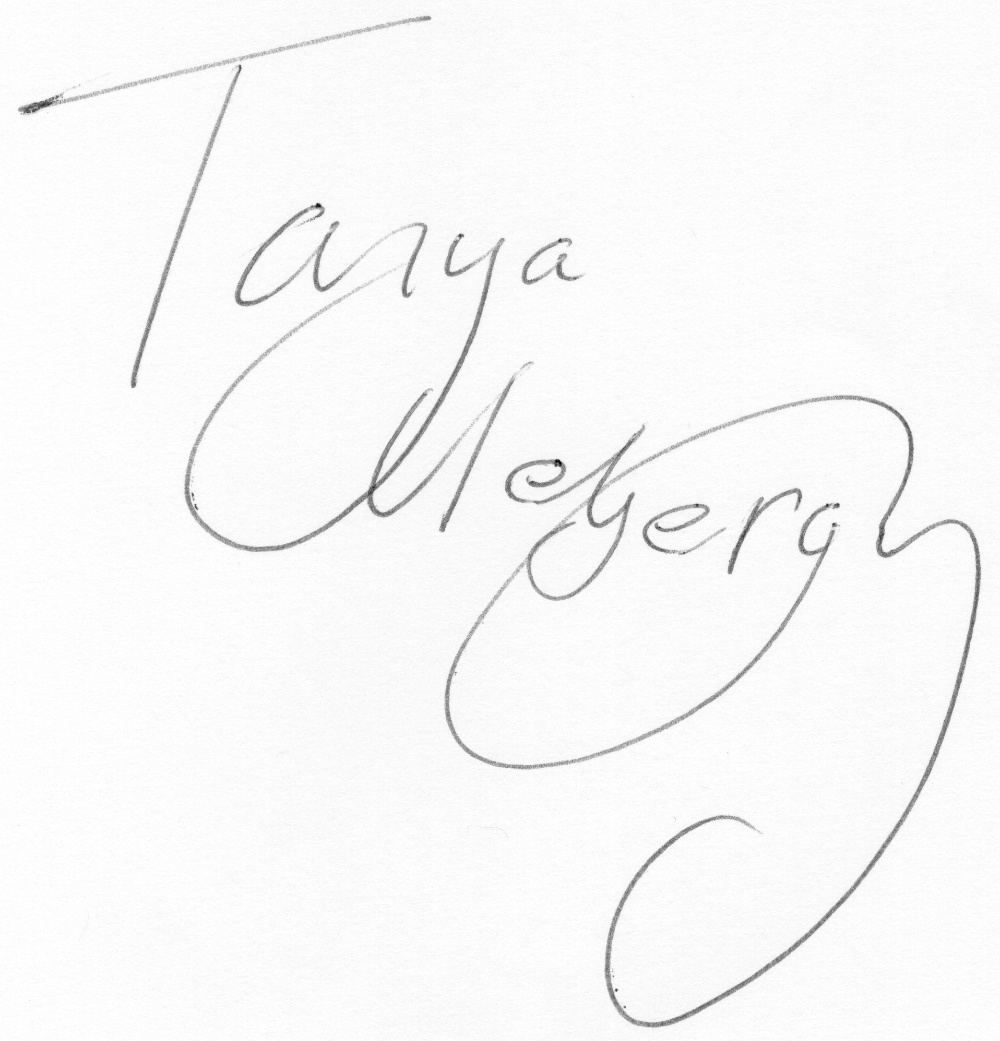 Tanya
Meyergy